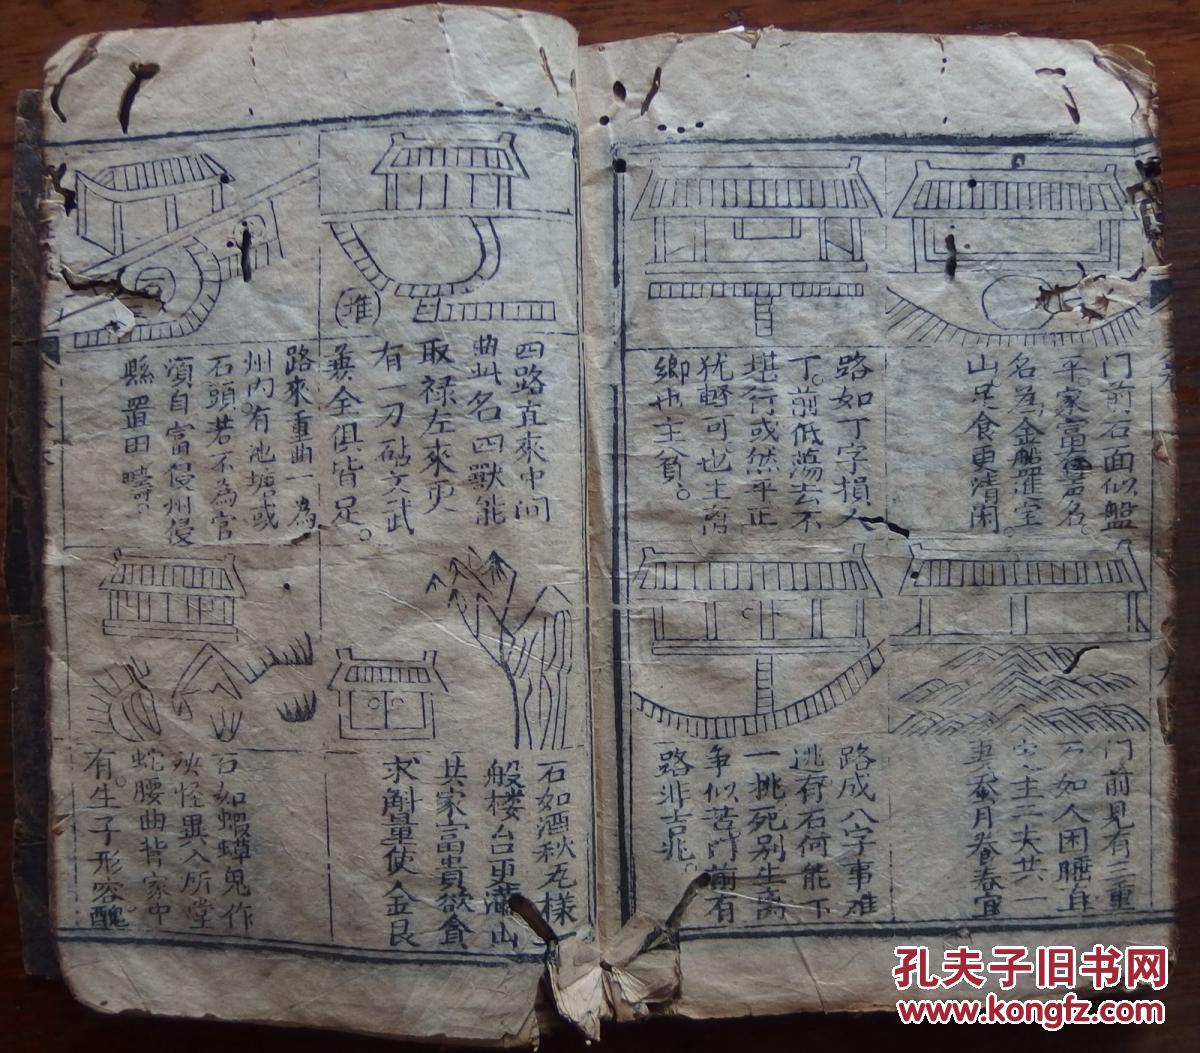 門前石面似盤
平家富貴名
名為金船羅室
山足食更清閑
路如丁字損人
丁前低蕩去不
堪行或然平正
犹輕可也主离
鄉也主貧。
門前見有三重
石如人困睡自
主二夫共一
妻蚕月養春宜
路成八字事难
逃有石何能下
一挑死别生离
争似苦門前有
路非吉兆。
堆
四路直來中间
此名四獸能
取禄左來更
有一刀砧文武
兼全俱皆足。
路來重曲一為
州内有池塘或
石頭若不為官
須自富侵州侵
縣置田疇。
石如酒秋瓦樣
般楼台更滿山
其家富貴欲貪
求斛量使金艮
石如蝦蟆鬼作
怪異入所堂
蛇腰曲背家中
有。生子形容醜
孔夫子旧书网
www.kongfz.com